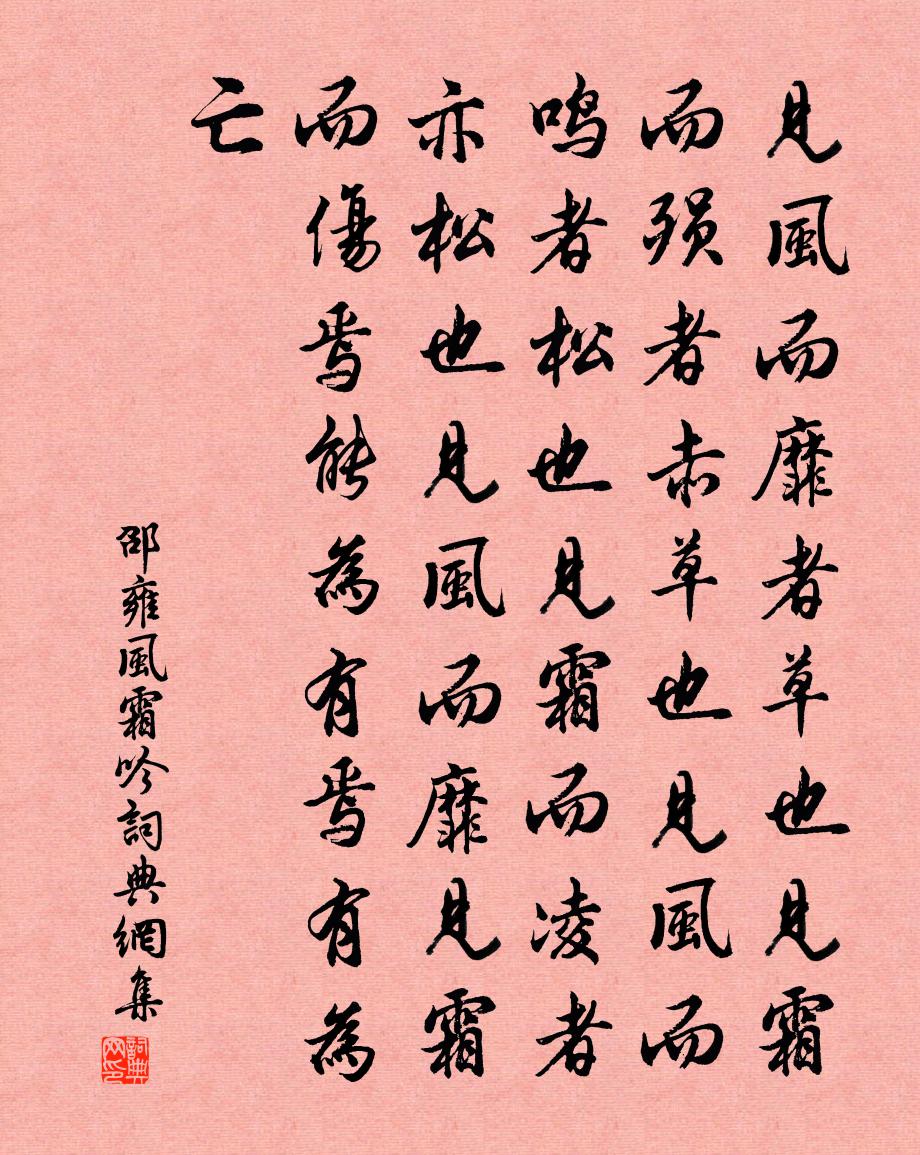 見風而靡者草也見霜
而殞者赤草也見風而
鳴者松也見霜而凌者
亦松也見風而靡見霜
而傷焉能為有焉有為
亡
邵雍風霜吟詞典網集
詞典
网印